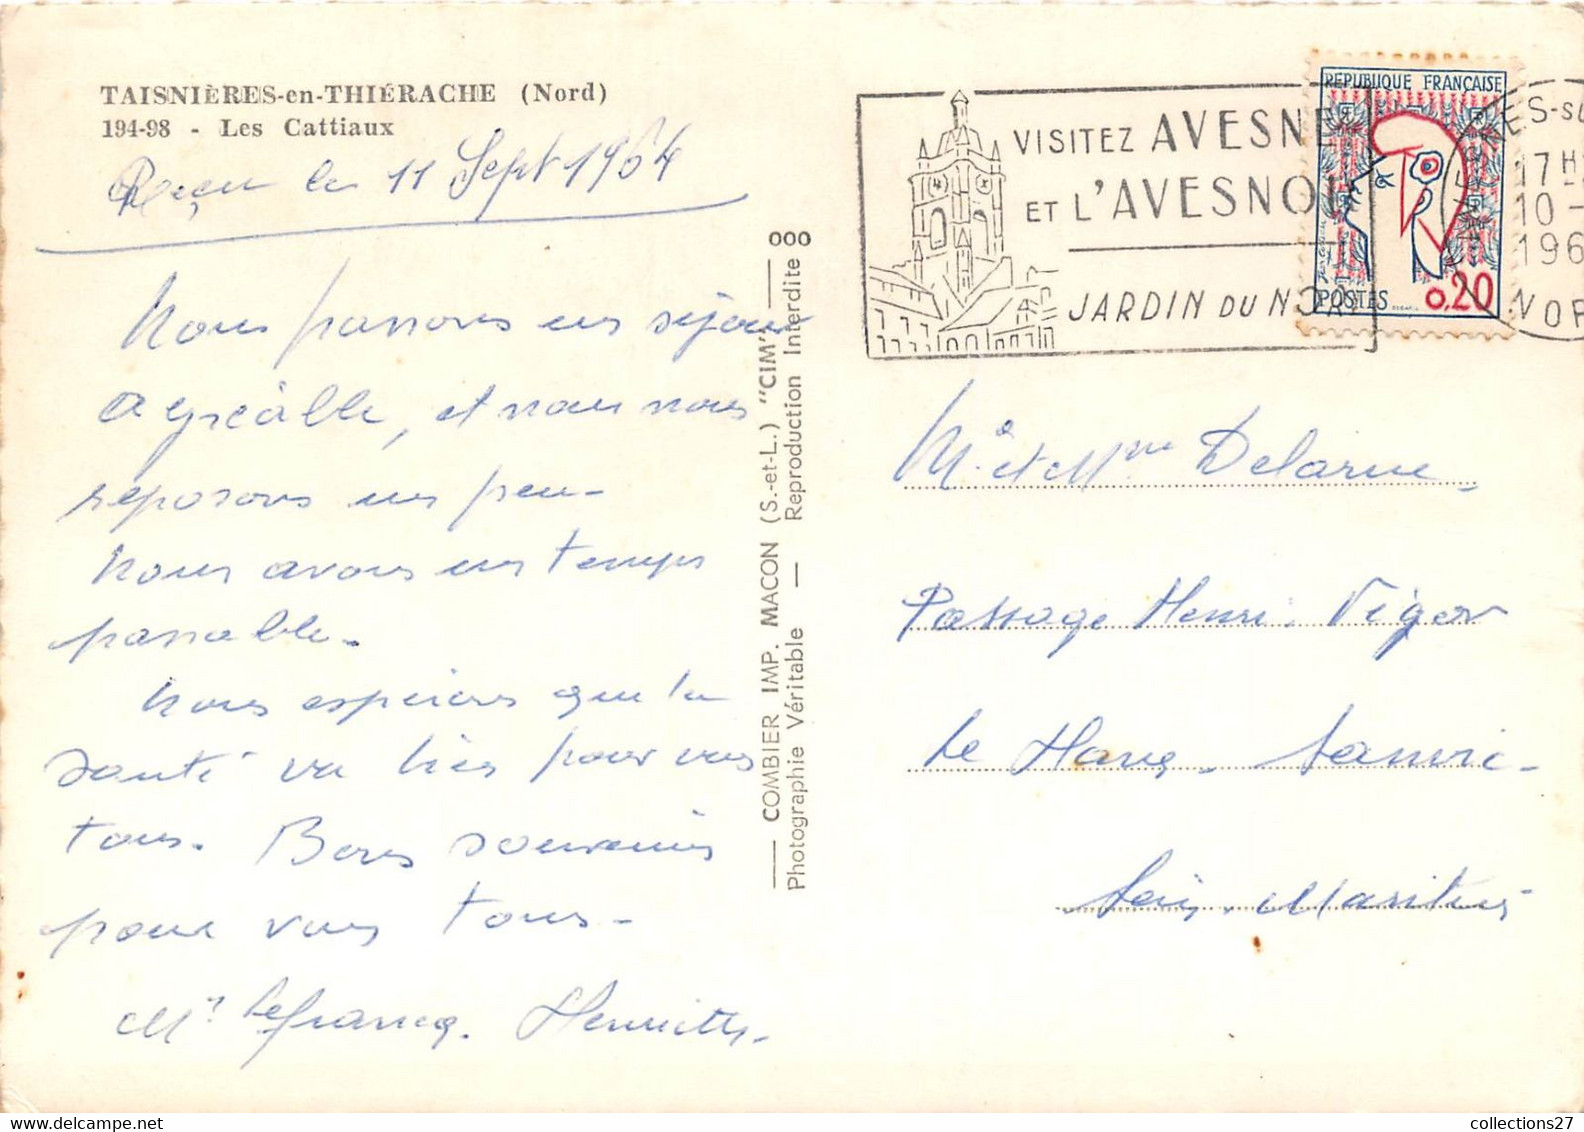 TAISNIÈRES-en-THIÉRACHE (Nord)
194-98 - Les Cattiaux
Reçu le 11 Sept 1964
Nous passons un séjour
agréable, et nous nous
reposons un peu-
Nous avons un temps
passable.
Nous espérons que la
santé va bien pour vous
tous. Bons souvenirs
pour vous tous-
Mr Lefrancq. Henriette.
COMBIER IMP. MACON (S.-et-L.) "CIM"
Photographie Véritable — Reproduction Interdite
000
VISITEZ AVESNE
ET L'AVESNOI
JARDIN DU NOR
REPUBLIQUE FRANÇAISE
POSTES
0.20
NES-SU
17H
10 -
196
NOR
Mr et Mme Delarue
Passage Henri. Vigor
Le Havre. Sanvic-
Seine. Maritime
collections27